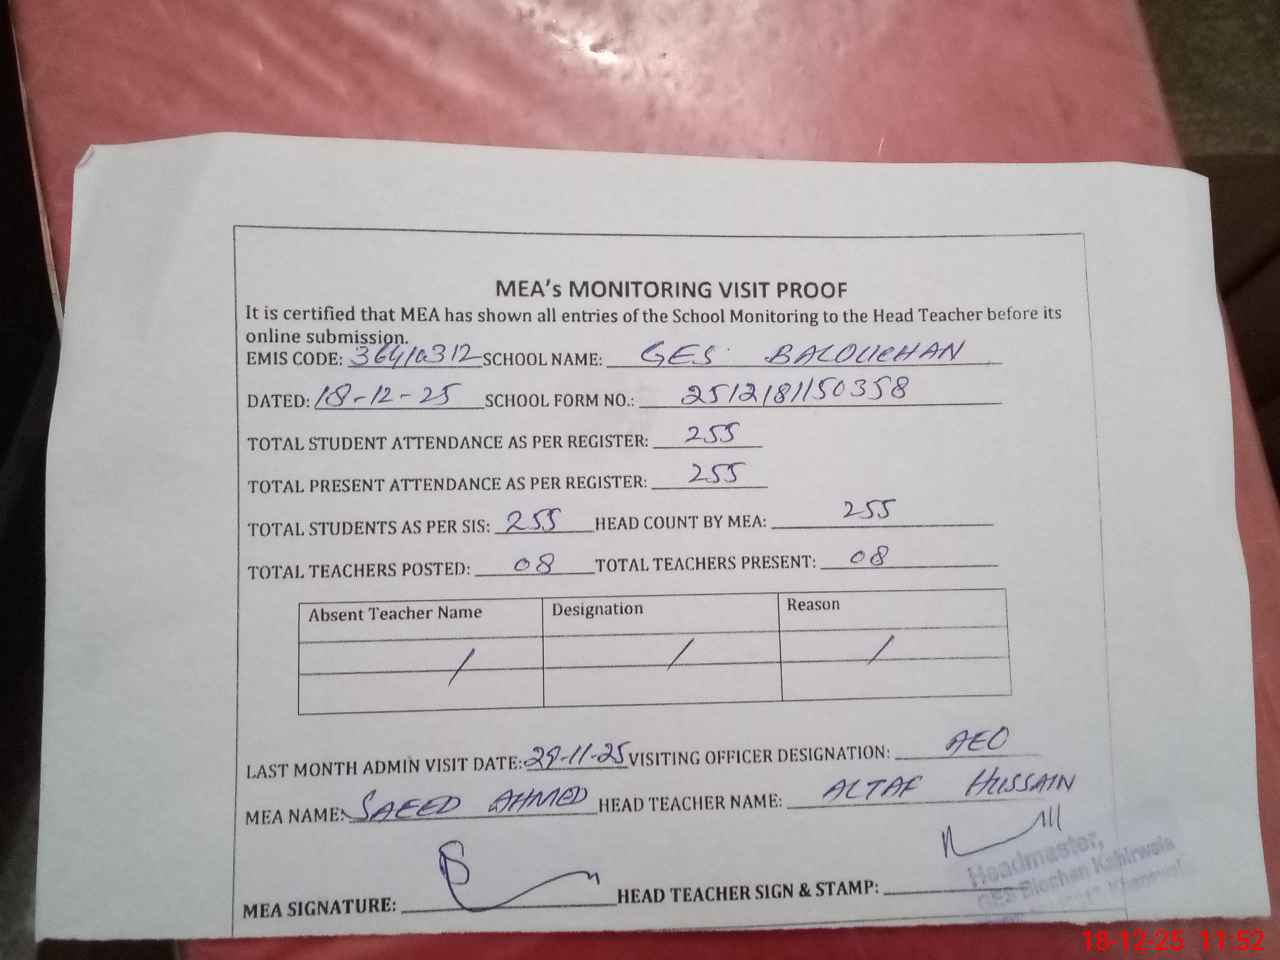 MEA's MONITORING VISIT PROOF
It is certified that MEA has shown all entries of the School Monitoring to the Head Teacher before its
online submission.
EMIS CODE: 36410312 SCHOOL NAME: GES BALOUCHAN
DATED: 18-12-25 SCHOOL FORM NO.: 2512181150358
TOTAL STUDENT ATTENDANCE AS PER REGISTER: 255
TOTAL PRESENT ATTENDANCE AS PER REGISTER: 255
TOTAL STUDENTS AS PER SIS: 255 HEAD COUNT BY MEA: 255
TOTAL TEACHERS POSTED: 08 TOTAL TEACHERS PRESENT: 08
Absent Teacher Name Designation Reason
/ / /
LAST MONTH ADMIN VISIT DATE: 29-11-25 VISITING OFFICER DESIGNATION: AEO
MEA NAME: SAEED AHMED HEAD TEACHER NAME: ALTAF HUSSAIN
MEA SIGNATURE: HEAD TEACHER SIGN & STAMP:
Headmaster,
GES Blochan Kabirwala
18-12-25 11:52